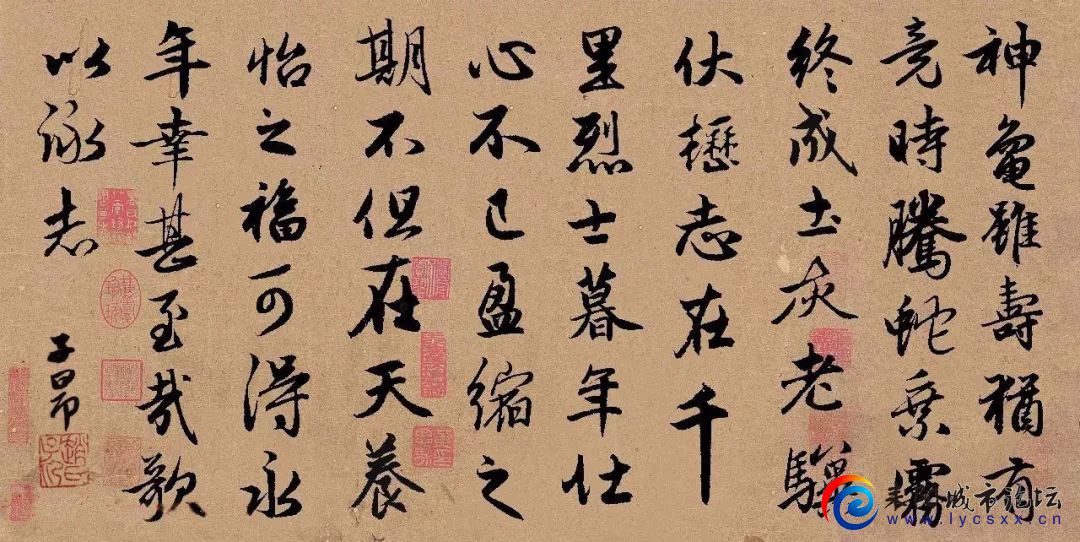 神龜雖壽猶有
竟時騰蛇乗霧
終成土灰老驥
伏櫪志在千
里烈士暮年壯
心不已盈縮之
期不但在天養
怡之福可得永
年幸甚至哉歌
以詠志
子昂
趙氏子昂
城市论坛
www.lycsxx.cn